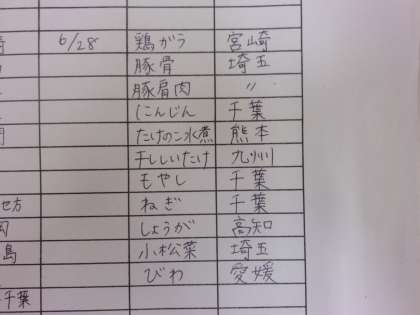 6/28 鶏がら 宮崎
豚骨 埼玉
豚肩肉 〃
にんじん 千葉
たけのこ水煮 熊本
干ししいたけ 九州
もやし 千葉
セ方 ねぎ 千葉
しょうが 高知
島 小松菜 埼玉
びわ 愛媛
千葉